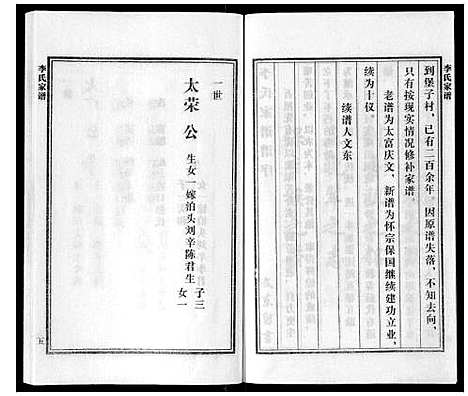 李氏家谱
到堡子村，已有二百余年。因原谱失落，不知去向，
只有按现实情况修补家谱。
老谱为太富庆文，新谱为怀宗保国继续建功立业，
续为十仪。
续谱人文东
李氏家谱
一世
太荣公
生女一嫁泊头刘辛陈君生
子三
女一
五